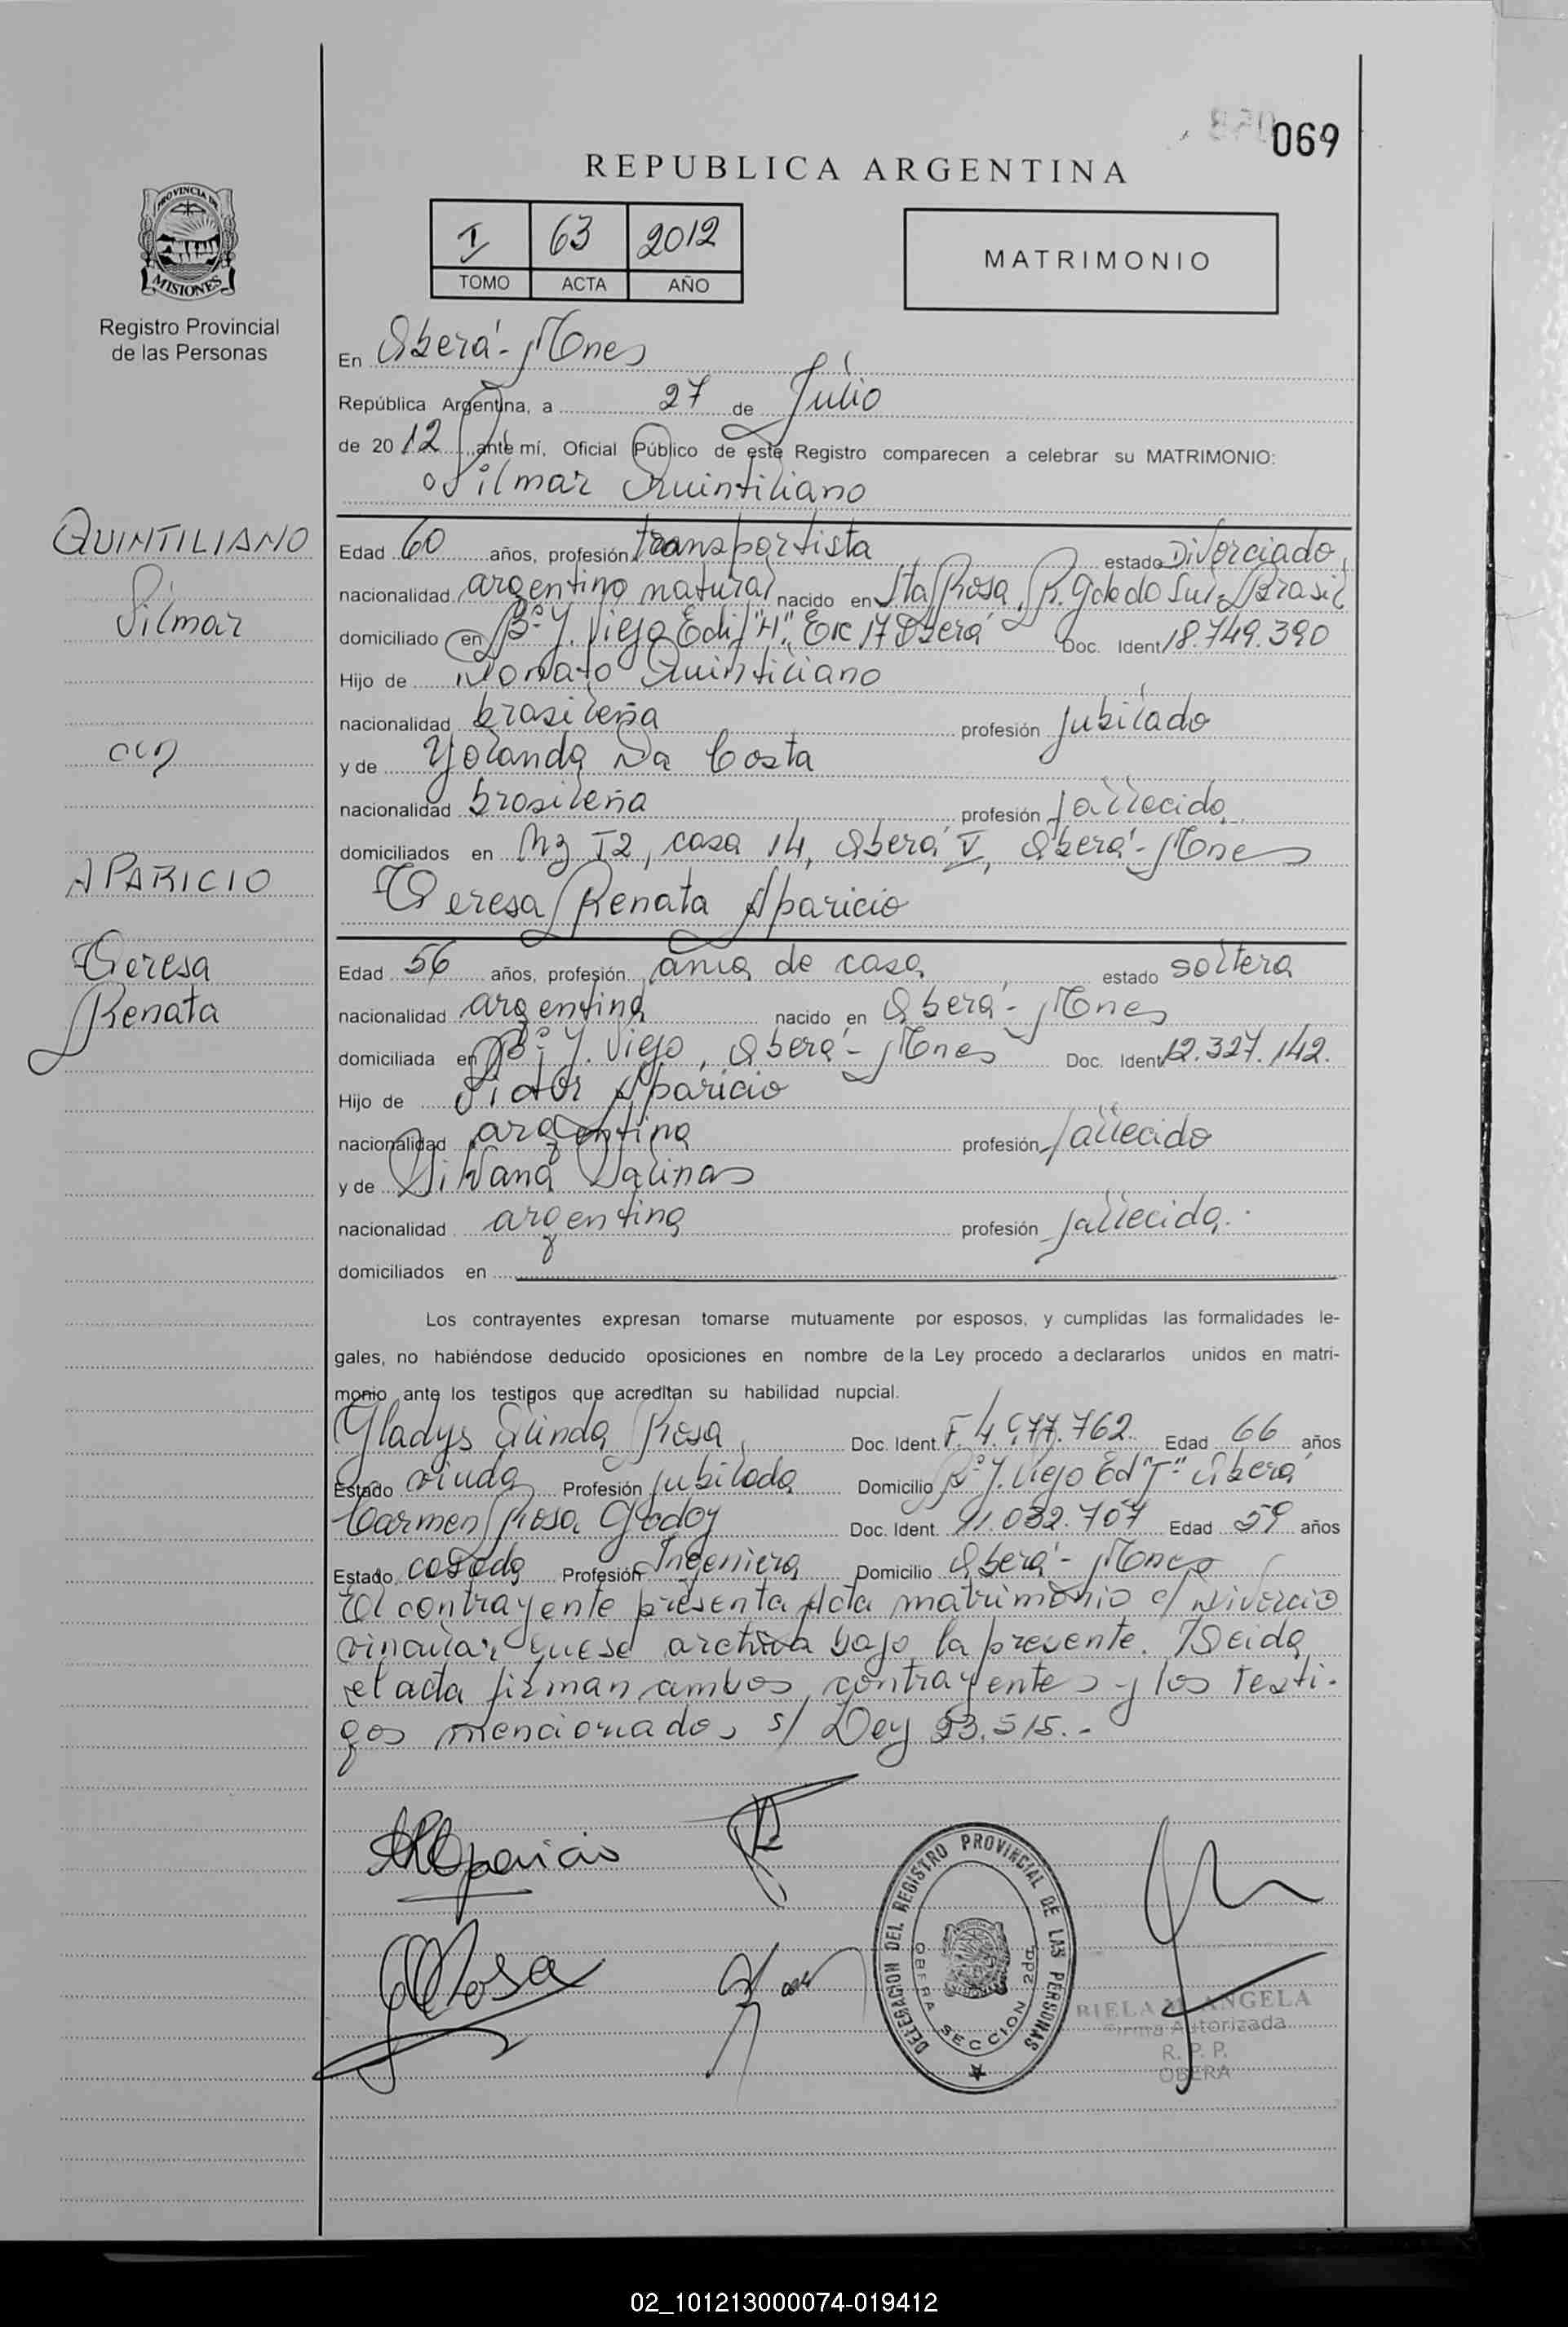 069
REPUBLICA ARGENTINA
I 63 2012
TOMO ACTA AÑO
MATRIMONIO
PROVINCIA DE
MISIONES
Registro Provincial
de las Personas
En Oberá - Mnes
República Argentina, a 27 de Julio
de 2012 ante mí, Oficial Público de este Registro comparecen a celebrar su MATRIMONIO:
Silmar Quintiliano
QUINTILIANO
Silmar
con
APARICIO
Teresa
Renata
Edad 60 años, profesión transportista estado Divorciado,
nacionalidad argentino natural nacido en Sta Rosa, R. G do do Sul - Brasil
domiciliado en Bº Y. Viejo Edif "H", Esc 17 Oberá Doc. Ident 18.749.390
Hijo de Donato Quintiliano
nacionalidad brasileña profesión jubilado
y de Yolanda Da Costa
nacionalidad brasileña profesión fallecida
domiciliados en Mz I2, casa 14, Oberá V, Oberá - Mnes
Teresa Renata Aparicio
Edad 56 años, profesión ama de casa estado soltera
nacionalidad argentina nacido en Oberá - Mnes
domiciliada en Bº Y. Viejo, Oberá - Mnes Doc. Ident 12.327.142.
Hijo de Victor Aparicio
nacionalidad argentina profesión fallecido
y de Silvana Salinas
nacionalidad argentina profesión fallecida.
domiciliados en
Los contrayentes expresan tomarse mutuamente por esposos, y cumplidas las formalidades le-
gales, no habiéndose deducido oposiciones en nombre de la Ley procedo a declararlos unidos en matri-
monio ante los testigos que acreditan su habilidad nupcial.
Gladys Elinda Rosa, Doc. Ident. F. 4.977.762. Edad 66 años
Estado viuda Profesión jubilada Domicilio Bº Y. Viejo Ed "T" Oberá
Carmen Rosa Godoy Doc. Ident. 91.032.707 Edad 59 años
Estado casada Profesión Ingeniera Domicilio Oberá - Mnes
El contrayente presenta Acta matrimonio c/ Divorcio
vincular que se archiva bajo la presente. Leida
el acta firman ambos contrayentes y los testi-
gos mencionados s/ Ley 23.515.-
Aparicio
Rosa
DELEGACION DEL REGISTRO PROVINCIAL DE LAS PERSONAS
OBERA SECCION 2da
RIELA M. ANGELA
Firma Autorizada
R. P. P.
OBERA
02_101213000074-019412